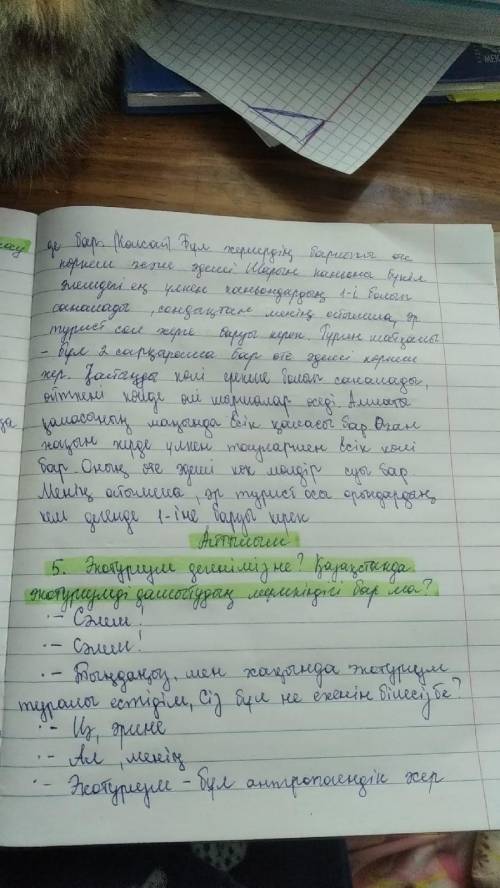 де бар. (Колсай) Бұл жерлердің барлығы өте
көрнекі және әдемі Шарын каньоны бүкіл
әлемдегі ең үлкен каньондардың 1-і болып
саналады, сондықтан менің ойымша, әр
турист сол жерге баруы керек. Түрген шатқалы
- бұл 2 сарқырамма бар өте әдемі көрнекі
жер. Қайыңды көлі ерекше болып саналады,
өйткені көлде өлі шыршалар өседі. Алматы
қаласының маңында Есік қаласы бар Оған
жақын жерде үлкен таулармен Есік көлі
бар. Оның өте әдемі көк мөлдір суы бар
Менің ойымша, әр турист осы орындардың
кем дегенде 1-іне баруы керек
Айтылым
5. Экотуризм дегеніміз не? Қазақстанда
экотуризмді дамытудың мүмкіндігі бар ма?
- Сәлем!
- Сәлем!
- Тыңдаңыз, мен жақында экотуризм
туралы естідім, Сіз бұл не екенін білесіз бе?
- Иә, әрине
- Ал, менің
- Экотуризм - бұл антропогендік әсер